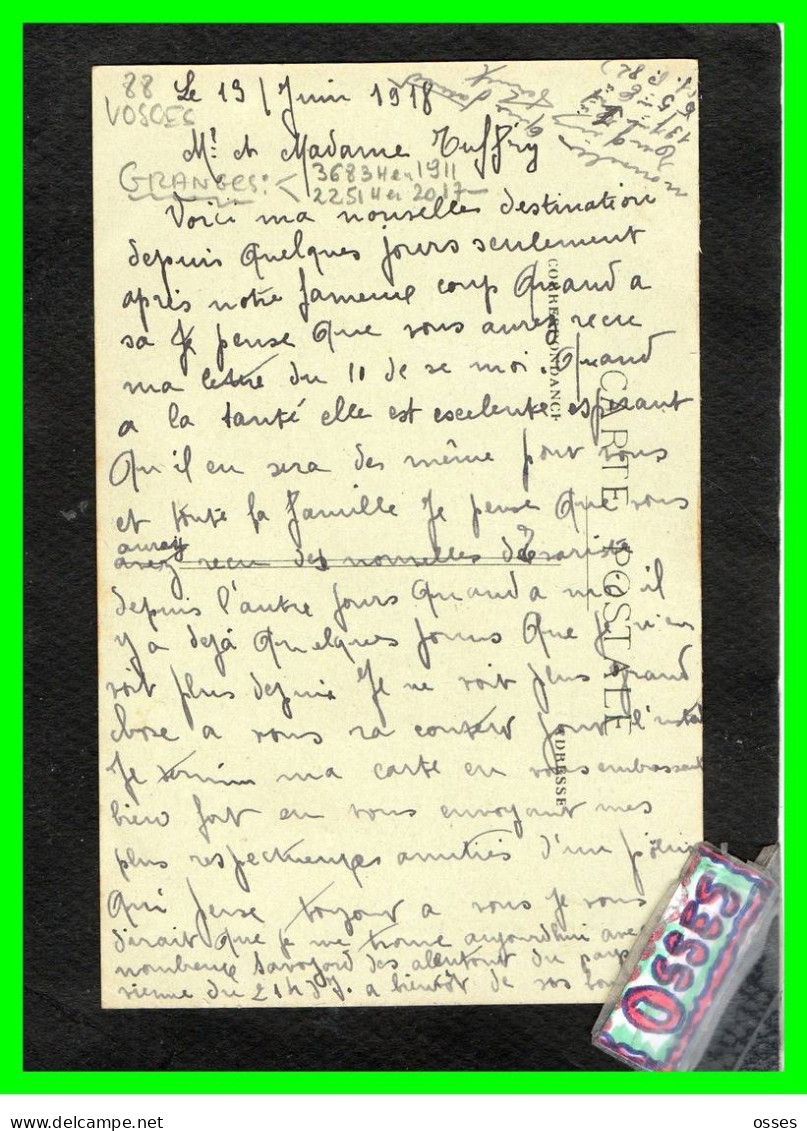 88
VOSGES
Le 13 / Juin 1918
Mr et Madame Tuffry
GRANGES: < 3683 H en 1911
2251 H en 2017
Voici ma nouvelles destination
depuis quelques jours seulement
après notre fameuse coup Quand a
sa Je pense que vous aurez recu
ma lettre du 11 de se moi. Quand
a la santé elle est excelente esperant
Qu'il en sera des même pour vous
et toute la famille Je pense que vous
aurez
avez recu des nouvelles de
depuis l'autre jours Quand a moi il
y a dejà quelques jours que je
soit plus depuis Je ne voit plus grand
chose a vous ra conter pour l'instant
Je termine ma carte en vous embrassant
bien fort en vous envoyant mes
plus respectueuses amitiés d'un poilu
Qui pense toujours a vous Je vous
dirait que je me trouve aujourdhui avec
nombreux Savoyard des alentour du pays
du 21 a bientôt de vos
CORRESPONDANCE
CARTE POSTALE
ADRESSE
OSSES
osses